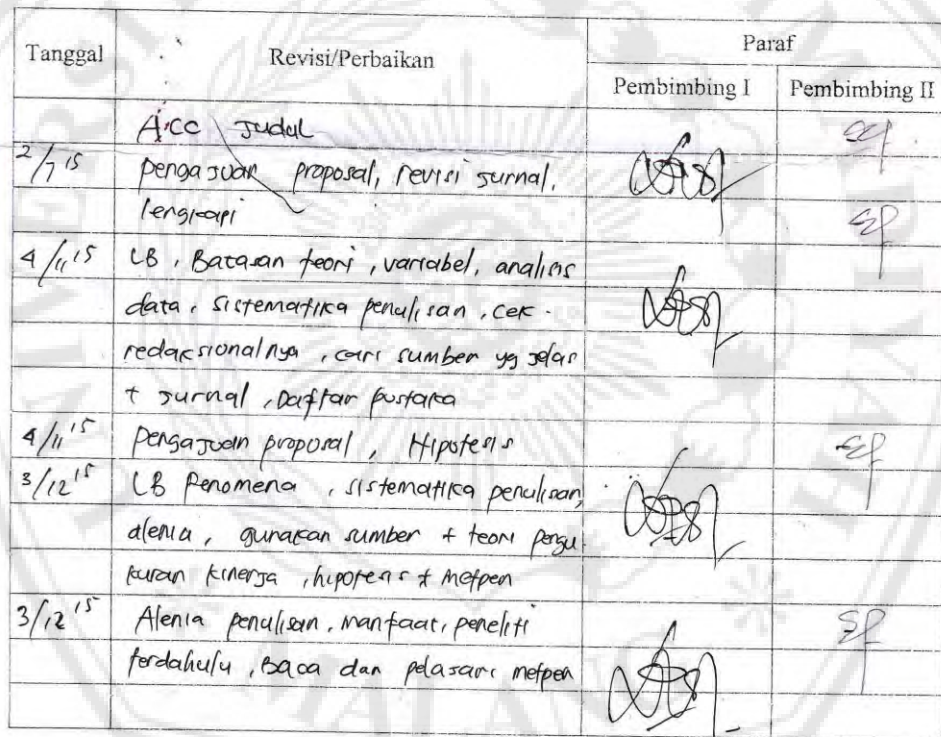 Tanggal Revisi/Perbaikan Paraf
Pembimbing I Pembimbing II
Acc Judul
2/7 15 pengajuan proposal, revisi jurnal,
lengkapi
4/11 15 LB, Batasan teori, variabel, analisis
data, sistematika penulisan, cek
redaksionalnya, cari sumber yg jelas
+ jurnal, Daftar pustaka
4/11 15 pengajuan proposal, Hipotesis
3/12 15 LB Penomena, sistematika penulisan,
alenia, gunakan sumber + teori pengu
kuran kinerja, hipotesis + metpen
3/12 15 Alenia penulisan, manfaat, peneliti
terdahulu, Baca dan pelajari metpen